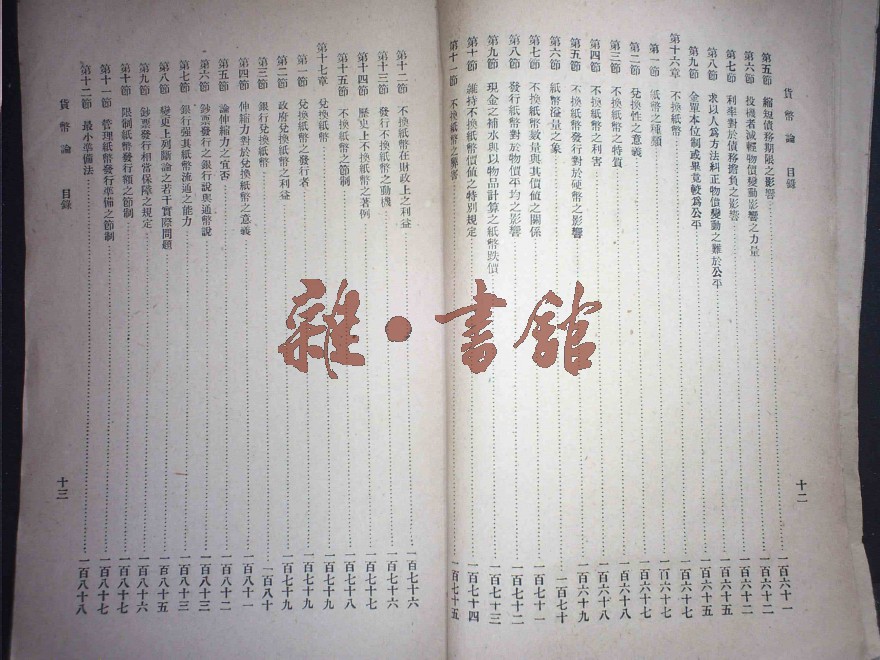 貨幣論 目錄 十二
第五節 縮短債務期限之影響 一百六十一
第六節 投機者減輕物價變動影響之力量 一百六十二
第七節 利率對於債務擔負之影響 一百六十二
第八節 求以人爲方法糾正物價變動之難於公平 一百六十五
第九節 金單本位制或果竟較爲公平 一百六十五
第十六章 不換紙幣 一百六十七
第一節 紙幣之種類 一百六十七
第二節 兌換性之意義 一百六十七
第三節 不換紙幣之特質 一百六十八
第四節 不換紙幣之利害 一百六十八
第五節 不換紙幣發行對於硬幣之影響 一百六十九
第六節 紙幣溢量之象 一百七十
第七節 不換紙幣數量與其價值之關係 一百七十一
第八節 發行紙幣對於物價平均之影響 一百七十二
第九節 現金之補水與以物品計算之紙幣跌價 一百七十三
第十節 維持不換紙幣價值之特別規定 一百七十四
第十一節 不換紙幣之弊害 一百七十五
第十二節 不換紙幣在財政上之利益 一百七十六
第十三節 發行不換紙幣之動機 一百七十六
第十四節 歷史上不換紙幣之著例 一百七十七
第十五節 不換紙幣之節制 一百七十八
第十七章 兌換紙幣 一百七十九
第一節 兌換紙幣之發行者 一百七十九
第二節 政府兌換紙幣之利益 一百七十九
第三節 銀行兌換紙幣 一百八十
第四節 伸縮力對於兌換紙幣之意義 一百八十一
第五節 論伸縮力之宜否 一百八十二
第六節 鈔票發行之銀行說與通幣說 一百八十三
第七節 銀行强其紙幣流通之能力 一百八十三
第八節 變更上列斷論之若干實際問題 一百八十四
第九節 鈔票發行相當保障之規定 一百八十六
第十節 限制紙幣發行額之節制 一百八十七
第十一節 管理紙幣發行準備之節制 一百八十七
第十二節 最小準備法 一百八十八
貨幣論 目錄 十三
雜·書館